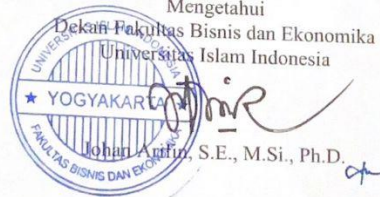 Mengetahui
Dekan Fakultas Bisnis dan Ekonomika
Universitas Islam Indonesia
UNIVERSITAS ISLAM INDONESIA
YOGYAKARTA
FAKULTAS BISNIS DAN EKONOMIKA
Johan Arifin, S.E., M.Si., Ph.D.